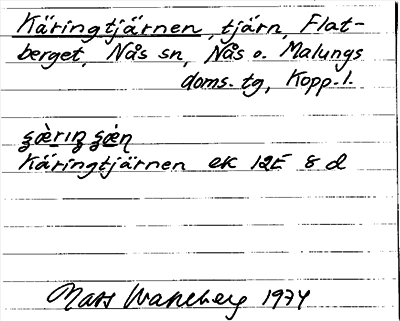 Käringtjärnen, tjärn, Flat-
berget, Nås sn, Nås o. Malungs
doms. tg, Kopp. l.
Käringtjärnen ek 12E 8 d
Mats Wahlberg 1974